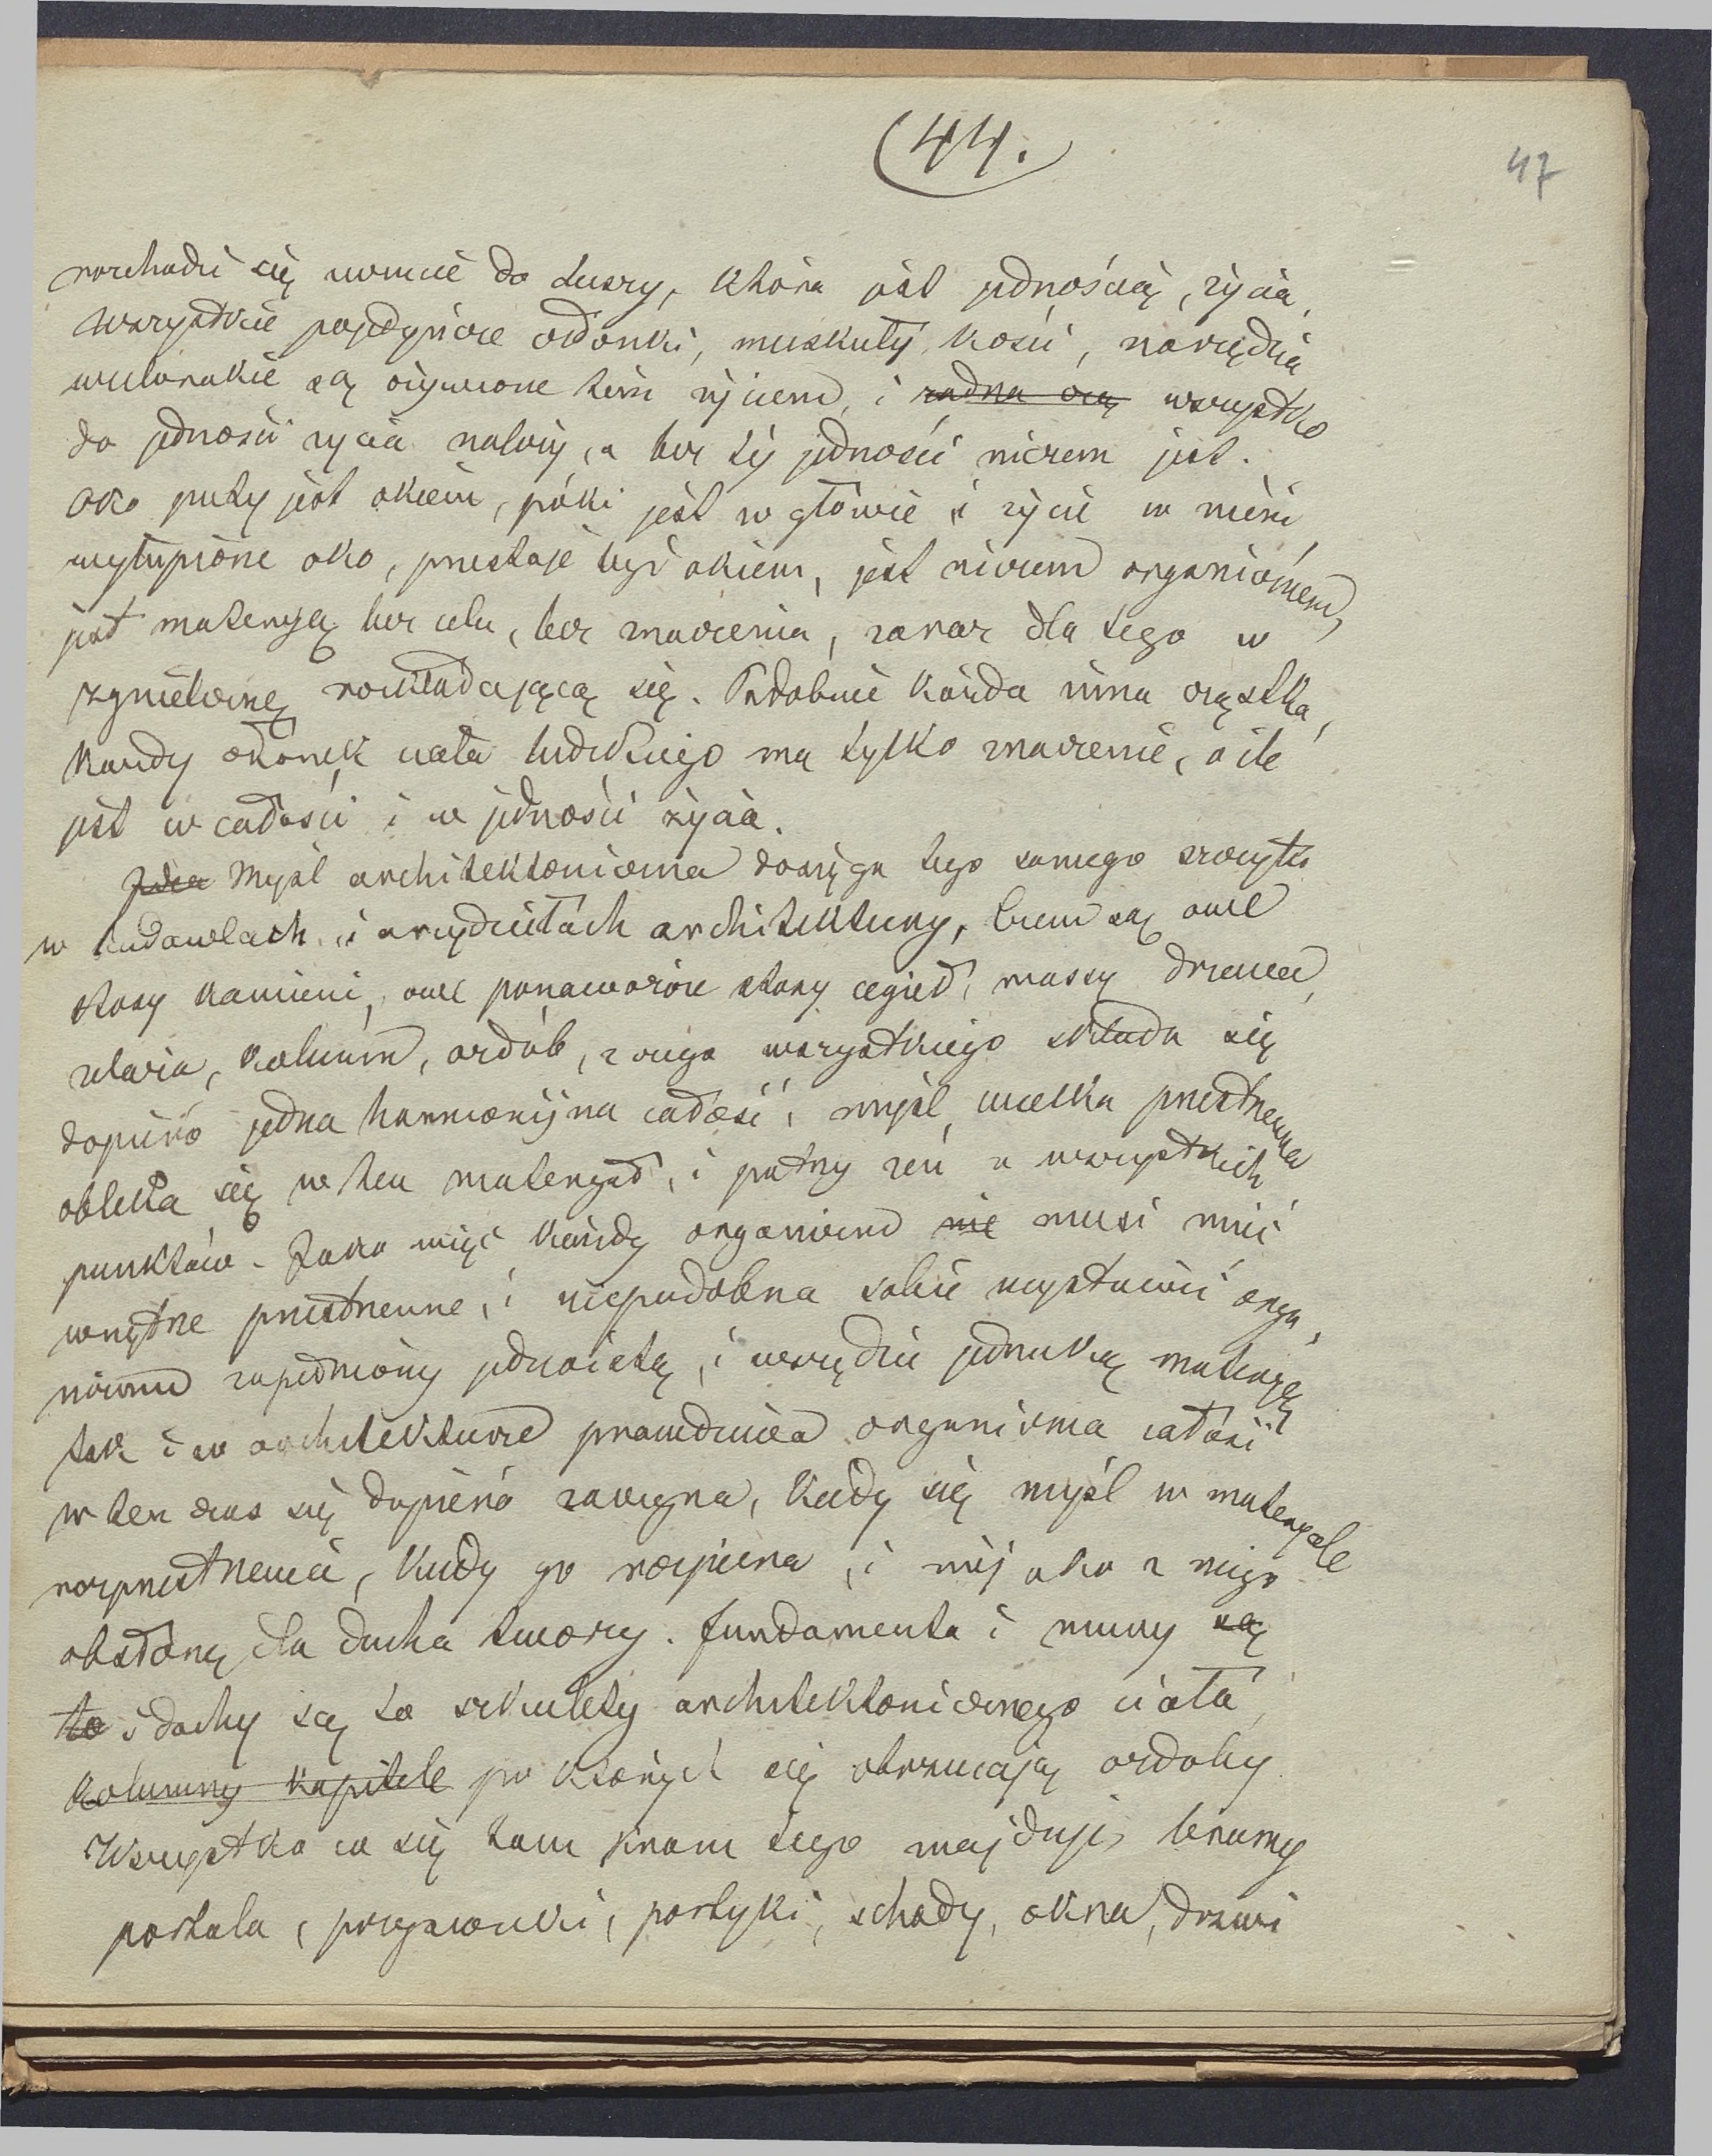 (44.)
47
rozchodzi się czucie do duszy, która jest jednością, życia,
Wszystkie pojedyńcze członki, muskuły, kości, narzędzia
wielorakie są ożywione tem życiem, i ~~żadna czę~~ wszystko
do jedności życia należy, a bez tej jedności niczem jest.
Oko puty jest okiem, póki jest w głowie i życie w niem,
wyłupione oko, przestaje być okiem, jest niczem organicznem,
jest materyą bez celu, bez znaczenia, zaraz dla tego w
zgniliznę rozkładającą się. Podobnie każda inna cząstka,
każdy członek ciała ludzkiego ma tylko znaczenie, o ile
jest w całości i w jedności życia.
~~Idea~~ Myśl architektoniczna dosięga tego samego szczytu
w budowlach, i arcydziełach architektury, biem są owe
stosy kamieni, owe ponaworóne stosy cegieł, massy drzewa,
żelaza, kolumn, ozdób, z czego wszystkiego składa się
dopiero jedna harmonijna całość, myśl wielka przestrzenna
obleka się w ten materyał, i patrzy zeń z wszystkich
punktów. Jako więc każdy organizm ~~nie~~ musi mieć
wnętrze przestrzenne, i niepodobna sobie wystawić orga,
nizmu zapełniony jednolitą, i wszędzie jednaką materyą
tak i w architekturze prawdziwa organiczna całość
w ten czas się dopiero zaczyna, kiedy się myśl w materyale
rozprzestrzenia, kiedy go rozpiera, i niejako z niego
obsłonę dla ducha tworzy. Fundamenta i mury ~~są~~
~~to~~ i dachy są to szkielety architektonicznego ciała,
~~kolumny kapitele~~ po których się obrzucają ozdoby.
Wszystko co się tam prócz tego znajduje, bramy
portala, przysionki, portyki, schody, okna, drzwi